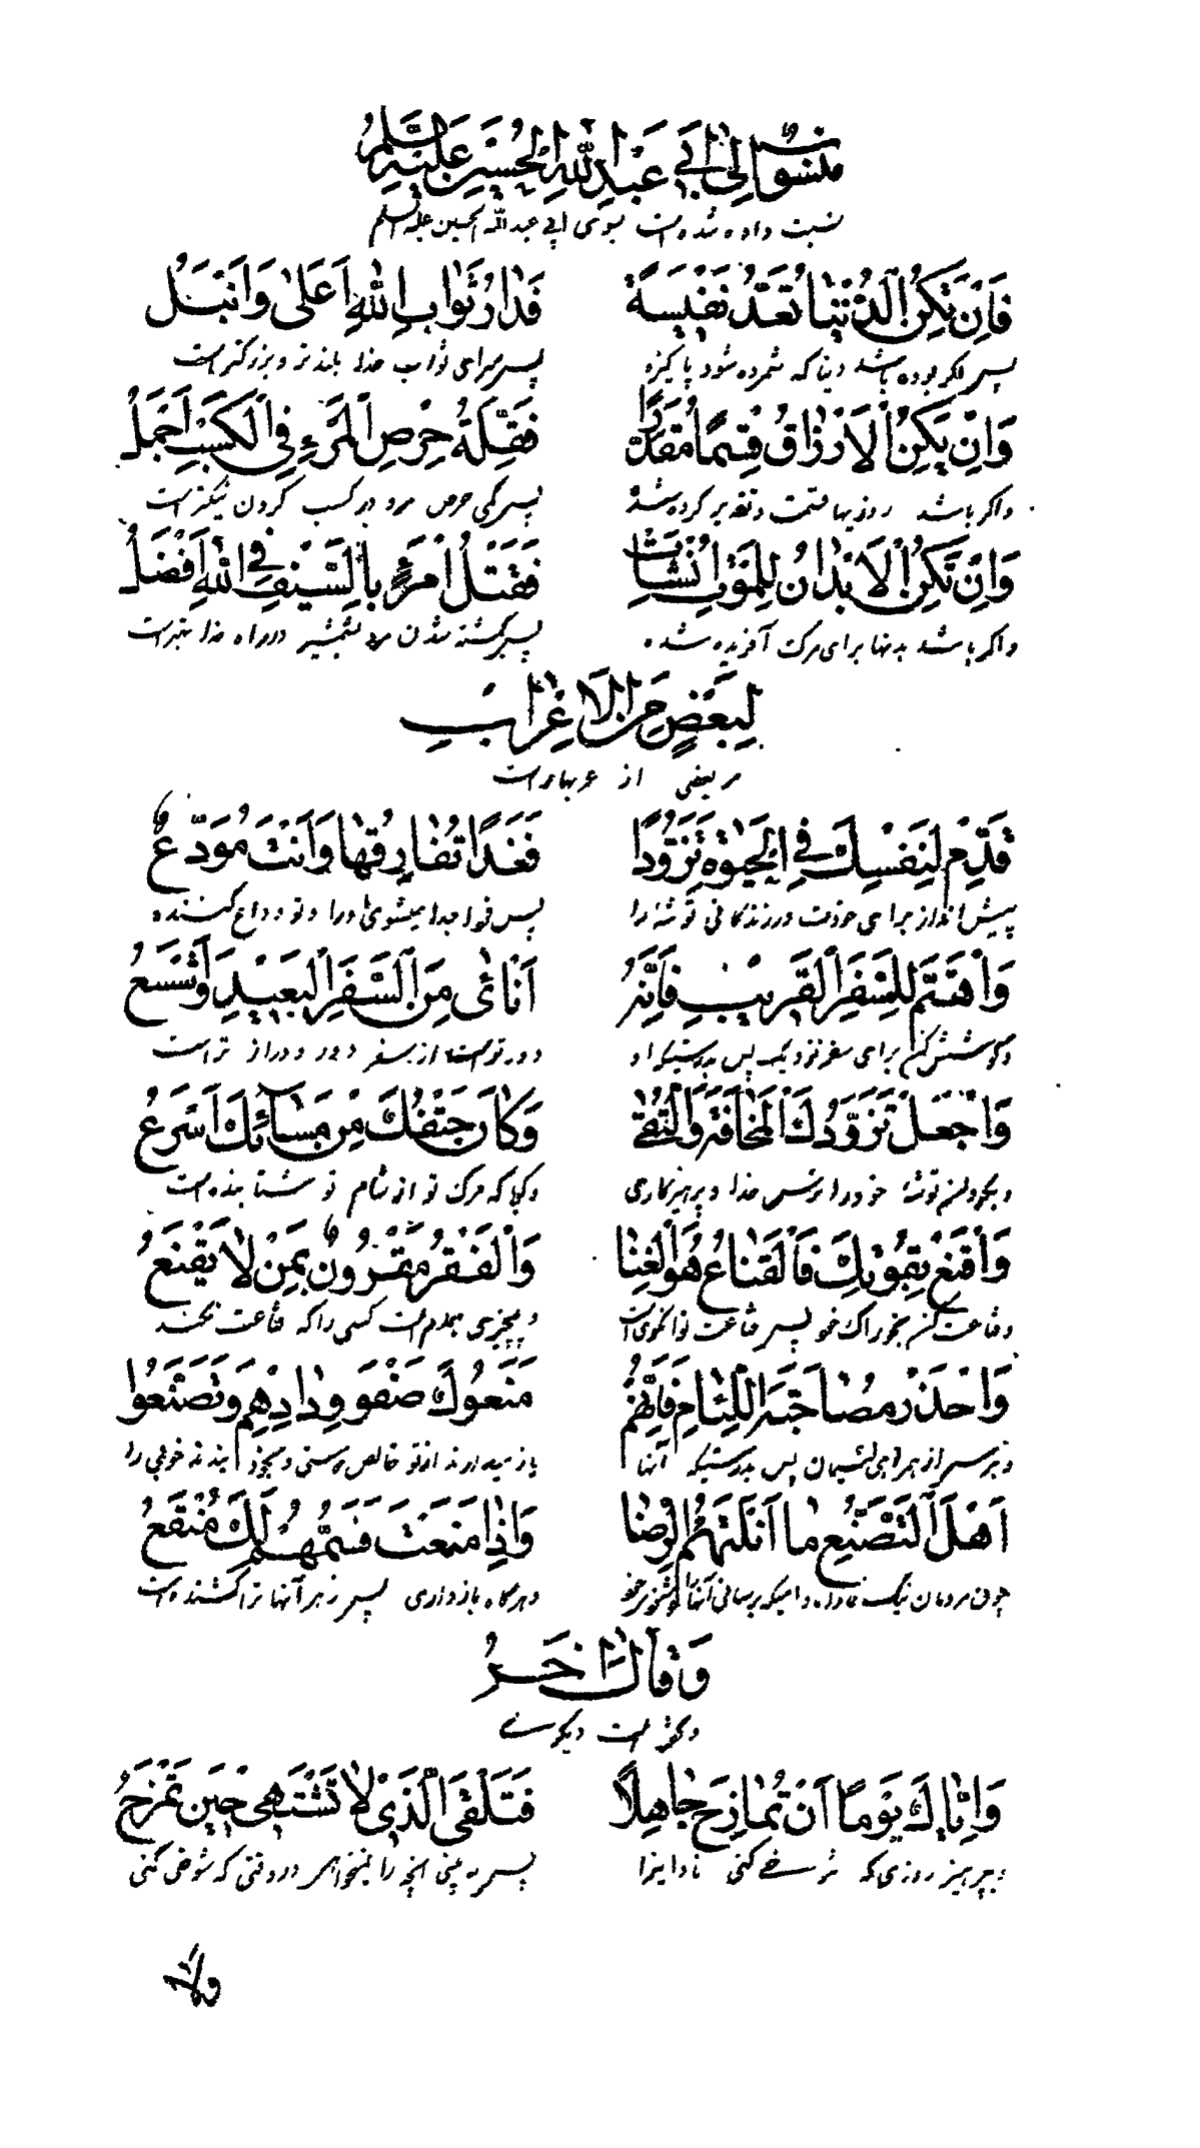 مَنْسُوبٌ اِلىٰ اَبي عَبْدِ اللّٰهِ الْحُسَيْنِ عَلَيْهِ السَّلامُ
نسبت داده شده است بسوی ابی عبد الله الحسین علیه السلم
فَاِنْ تَكُنِ الدُّنْيٰا تُعَدُّ نَفْيسَةً فَدٰارُ ثَوٰابِ اللّٰهِ اَعْلىٰ وَاَنْبَلُ
پس اگر بوده باشد دنیا که شمرده شود پاکیزه پس سرای ثواب خدا بلندتر و بزرگتر است
وَاِنْ يَكُنِ الْاَرْزٰاقُ قِسْمًا مُقَدَّرًا فَقِلَّةُ حِرْصِ الْمَرْءِ فِي الْكَسْبِ اَجْمَلُ
واگر باشد روزیها قسمت و تقدیر کرده شده پس کمی حرص مرد در کسب کردن نیکتر است
وَاِنْ تَكُنِ الْاَبْدٰانُ لِلْمَوْتِ اُنْشِاَتْ فَقَتْلُ امْرَءٍ بِالسَّيْفِ فِي اللّٰهِ اَفْضَلُ
واگر باشد بدنها برای مرک آفریده شده پس کشته شدن مرد بشمشیر در راه خدا بهتر است
لِبَعْضٍ مِنَ الْاَعْرٰابِ
مر بعضی از عربها راست
قَدِّمْ لِنَفْسِكَ فِي الْحَيٰوةِ تَزَوُّدًا فَغَدًا تُفٰارِقُهٰا وَاَنْتَ مُوَدِّعٌ
پیش انداز برای خودت در زندکانی توشه را پس فردا جدا میشوی اورا و تو وداع کننده
وَاهْتَمَّ لِلسَّفَرِ الْقَريْبِ فَاِنَّهُ اَنْاٰئى مِنَ السَّفَرِ الْبَعيْدِ وَاَشْسَعُ
و کوشش کن برای سفر نزدیک پس بدرستیکه او دورتر است از سفر دور و درازتر است
وَاجْعَلْ تَزَوُّدَكَ الْمَخٰافَةَ وَالتُّقىٰ وَكٰانَ حَتْفُكَ مِنْ مَسٰائِكَ اَسْرَعُ
و بکردان توشه خود را ترس خدا و پرهیزکاری و کویا که مرک تو از شام تو شتابنده است
وَاقْنَعْ بِقُوْتِكَ فَالْقَنٰاعُ هُوَ الْغِنٰا وَالْفَقْرُ مَقْرُونٌ بِمَنْ لاٰ يَقْنَعُ
و قناعت کن بخوراک خود پس قناعت توانکری است و بیچیزی همدم است کسی را که قناعت نکند
وَاحْذَرْ مُصٰاحَبَةَ اللِّئٰامِ فَاِنَّهُمْ مَنَعُوكَ صَفْوَ وِدٰادِهِمْ وَتَصَنَّعُوا
و بترس از همراهی لئیمان پس بدرستیکه آنها باز میدارند از تو خالص دوستی و بخود بندند خوبی را
اَهْلُ التَّصَنُّعِ مٰا اَنَلْتَهُمُ الرِّضٰا وَاِذٰا مَنَعْتَ فَسَمُّهُمْ لَكَ مُنْقَعٌ
و هرکاه بازداری پس زهر آنها ترا کشنده است
وَقٰالَ اٰخَرُ
و گفته است دیکری
وَاِيّٰاكَ يَوْمًا اَنْ تُمٰازِحَ جٰاهِلًا فَتَلْقَى الَّذيْ لاٰ تَشْتَهي حيْنَ تَمْزَحُ
و بپرهیز روزی که شوخی کنی نادانیرا پس به بینی انچه را نمیخواهی در وقتی که شوخی کنی
ولا